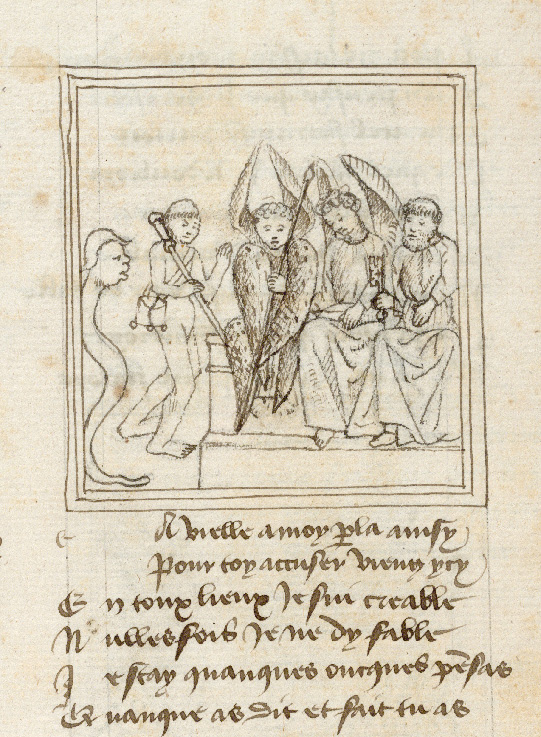 A vielle a moy p la ainsy
Pour toy accuser vieng ycy
En toux lieux Je sui creable
Nulles fois Je ne dy fable
Je scay quanques oncques pensas
Quanque as dit et fait tu as